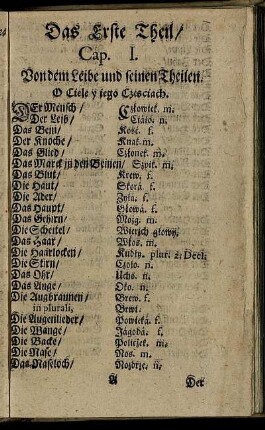 Das Erste Theil/
Cap. I.
Von dem Leibe und seinen Theilen.
O Ciele y jego Częsciach.
DEr Mensch/ Człowiek. m.
Der Leib/ Ciáło. n.
Das Bein/ Kość. f.
Der Knoche/ Knat. m.
Das Glied/ Członek. m.
Das Marck in den Beinen/ Szpik. m.
Das Blut/ Krew. f.
Die Haut/ Skorá. f.
Die Ader/ Żyłá. f.
Das Haupt/ Głowá. f.
Das Gehirn/ Mozg. m.
Die Scheitel/ Wierzch głowy.
Das Haar/ Włos. m.
Die Haarlocken/ Kudły. plur. 2. Decl.
Die Stirn/ Czoło. n.
Das Ohr/ Ucho. n.
Das Auge/ Oko. n.
Die Augbraunen/ Brew. f.
in plurali, Brwi.
Die Augenlieder/ Powieká. f.
Die Wange/ Jágodá. f.
Die Backe/ Policzek. m.
Die Nase/ Nos. m.
Das Nasloch/ Nozdrze. n.
A Der